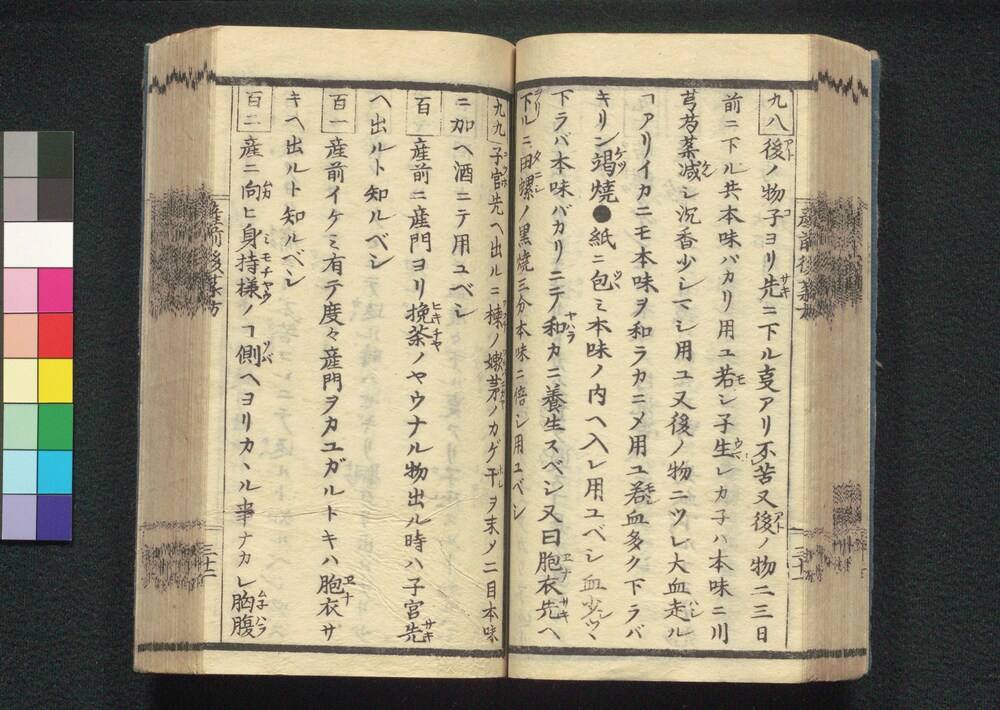 九八 後ノ物子ヨリ先ニ下ル㕝アリ不苦又後ノ物二三日
前ニ下ル共本味バカリ用ユ若シ子生レカ子ハ本味ニ川
芎芍薬减シ沉香少シマシ用ユ又後ノ物ニツレ大血走ル
ヿアリイカニモ本味ヲ和ラカニメ用ユ若血多ク下ラバ
キリン竭燒●紙ニ包ミ本味ノ内ヘ入レ用ユベシ血少シヅヽ
下ラバ本味バカリニテ和カニ養生スベシ又曰胞衣先ヘ
下ルニ田螺ノ黒燒三分本味ニ倍シ用ユベシ
九九 子宮先ヘ出ルニ棟ノ嫩芽ノカゲ干ヲ末メ二目本味
ニ加ヘ酒ニテ用ユベシ
百 産前ニ産門ヨリ挽茶ノヤウナル物出ル時ハ子宮先
ヘ出ルト知ルベシ
百一 産前イケミ有テ度々産門ヲカユガルトキハ胞衣サ
キヘ出ルト知ルベシ
百二 産ニ向ヒ身持様ノヿ側ヘヨリカヽル事ナカレ胸腹
産前後藥方
三十二